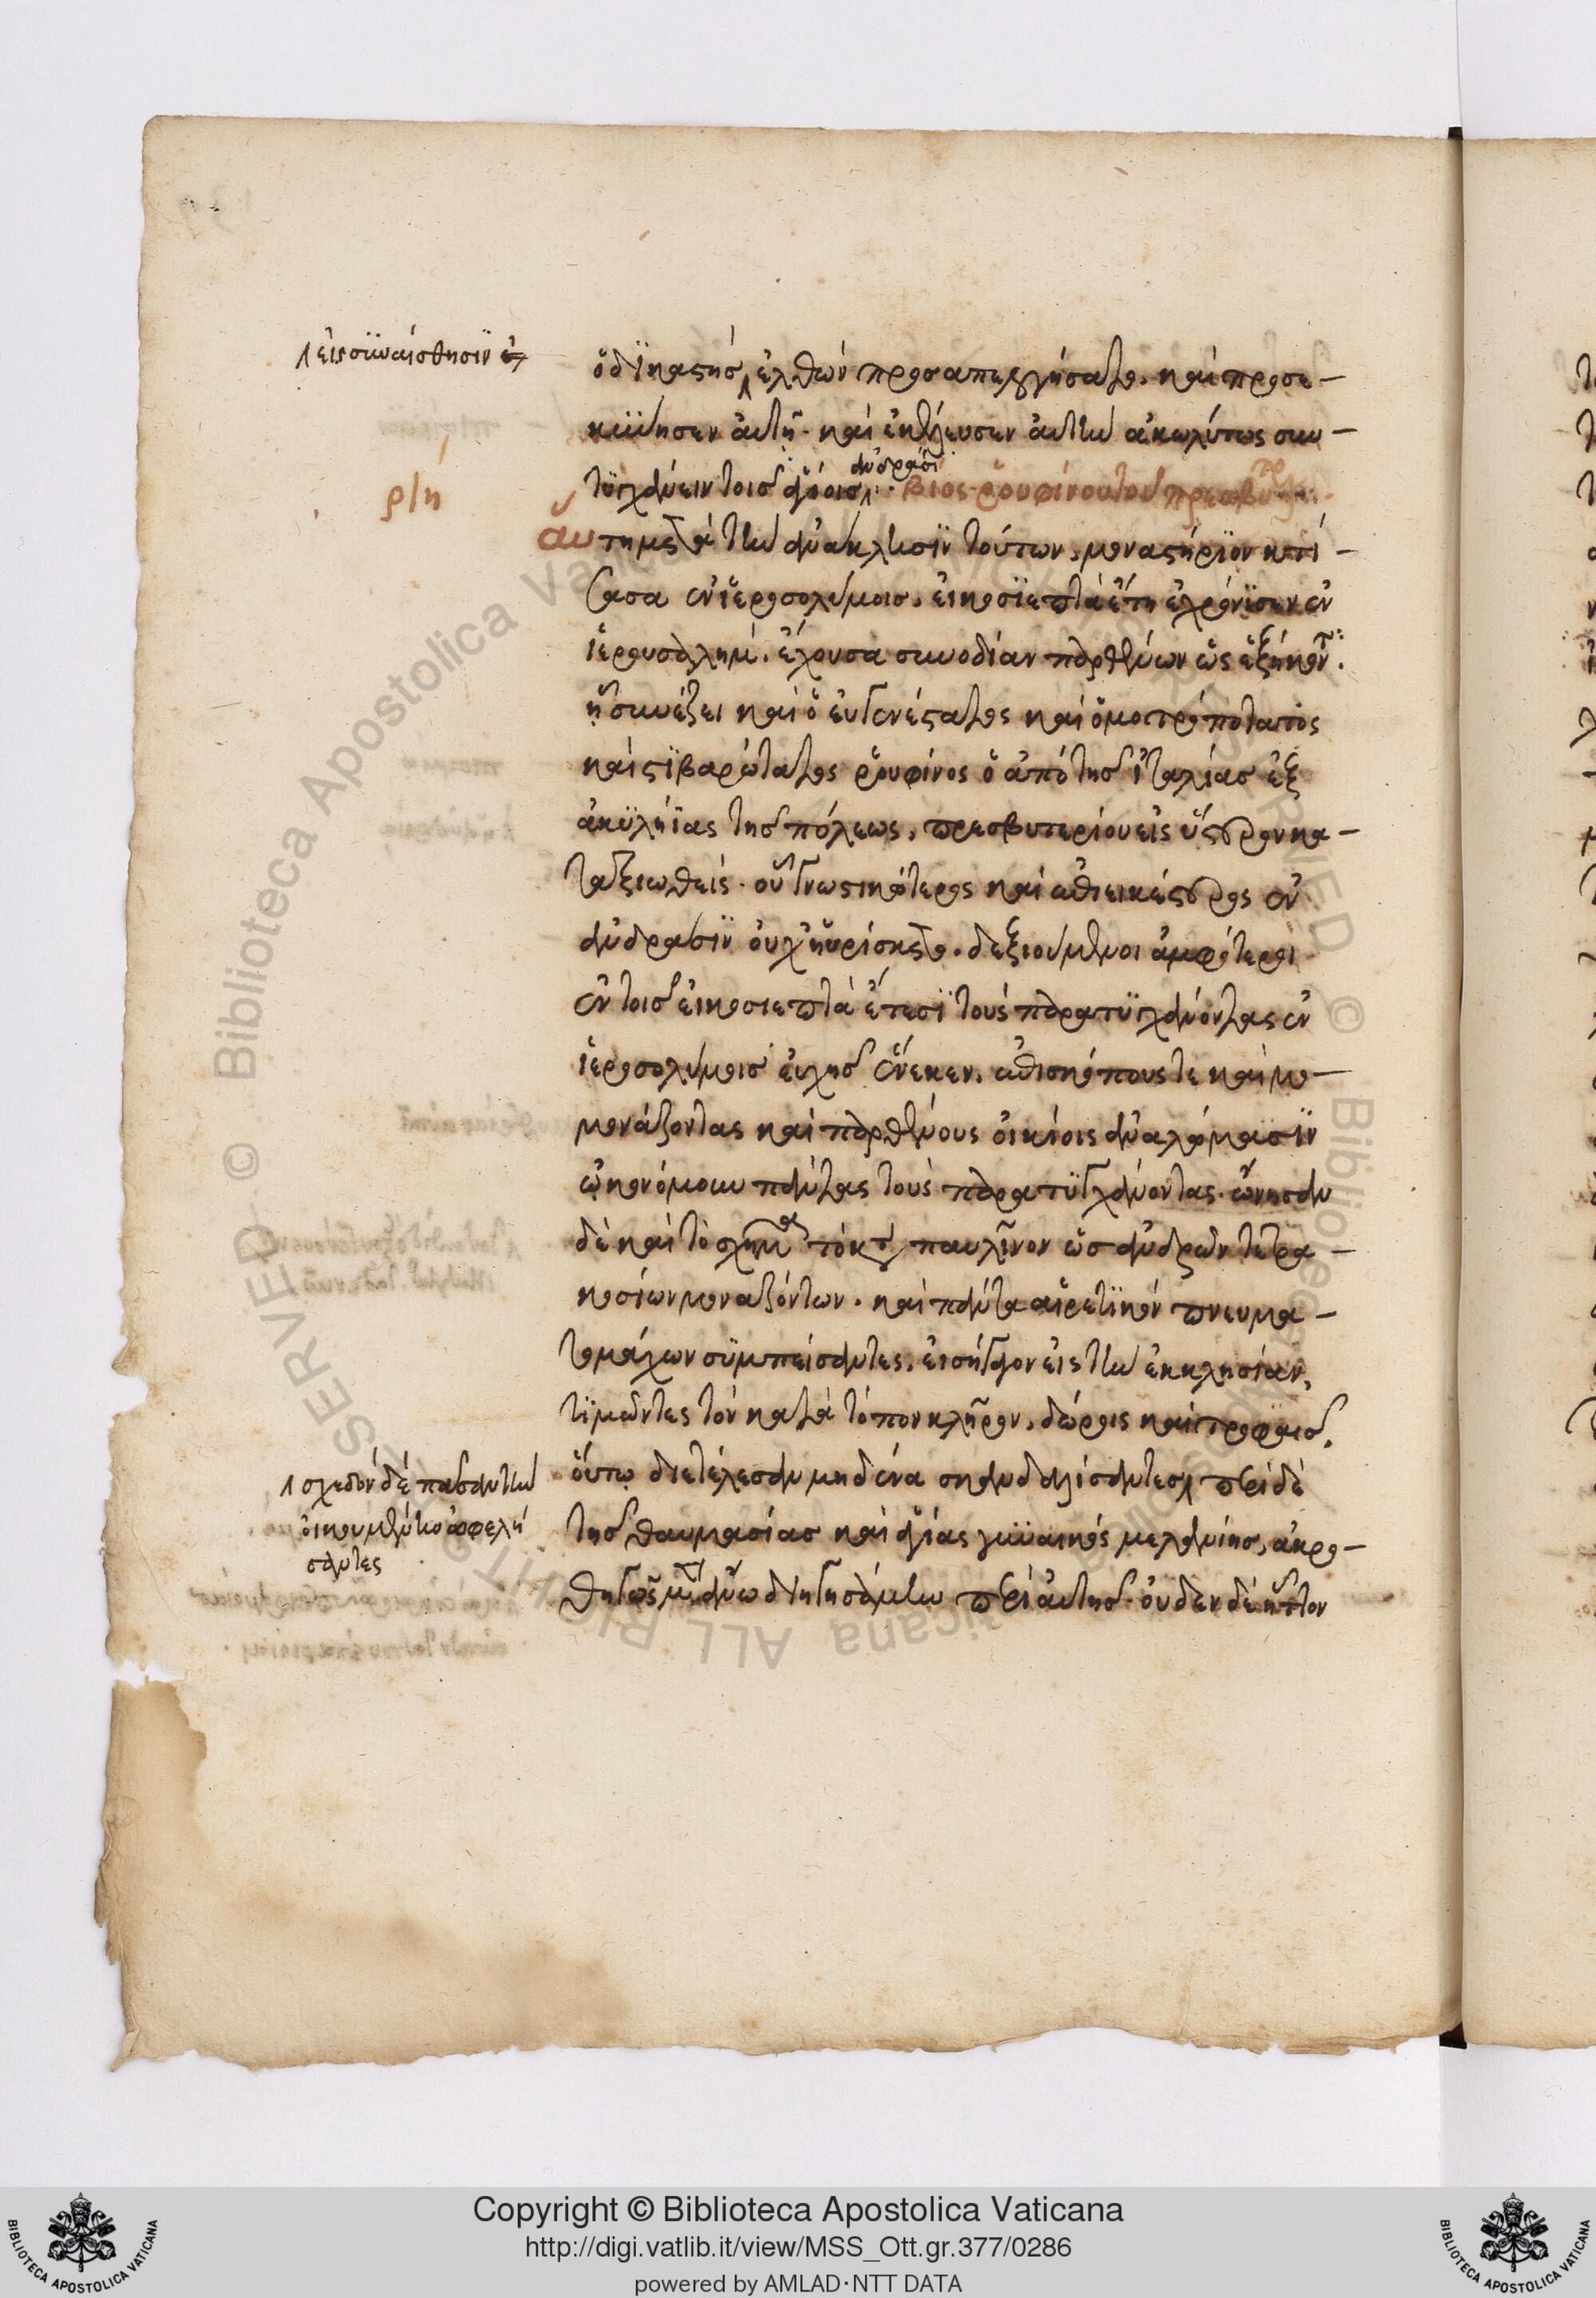 ⸌ εἰς συναίσθησιν
ὁ δικαστὴς ⸌ ἐλθὼν προσαπελογήσατο. καὶ προσε-
κύνησεν αὐτῆ· καὶ ἐκέλευσεν αὐτὴν ἀκωλύτως συν-
ἀνδράσι
τυγχάνειν τοῖς ἁγίοις ⸌· βίος ῥουφίνου τοῦ πρεσβυτέρου
ρκη
αὕτη μετὰ τὴν ἀνάκλησιν τούτων, μοναστήριον κτί-
σασα ἐν ἱεροσολύμοις, εἰκοσιεπτὰ ἔτη ἐχρόνισεν ἐν
ἱερουσαλὴμ. ἔχουσα συνοδίαν παρθένων ὡς ἑξήκοντα.
ᾗ συνέζει καὶ ὁ εὐγενέστατος καὶ ὁμοτροπότατος
καὶ στιβαρώτατος ῥουφίνος ὁ ἀπὸ τῆς ἰταλίας ἐξ
ἀκυληΐας τῆς πόλεως, πρεσβυτερίου εἰς ὕστερον κα-
ταξιωθείς. οὗ γνωστικώτερος καὶ ἐπιεικέστερος ἐν
ἀνδράσιν οὐχ ηὑρίσκετο. δεξιούμενοι ἀμφότεροι
ἐν τοῖς εἰκοσιεπτὰ ἔτεσι τοὺς παρατυγχάνοντας ἐν
ἱεροσολύμοις εὐχῆς ἕνεκεν, ἐπισκόπους τε καὶ μο-
μονάζοντας καὶ παρθένους οἰκίοις ἀναλώμασιν
ᾠκονόμουν πάντας τοὺς παρατυγχάνοντας. ἥνωσαν
δὲ καὶ τὸ σχῆμα τὸ κατὰ παυλῖνον ὡς ἀνδρῶν τετρα-
κοσίων μοναζόντων. καὶ πάντα αἱρετικὸν πνευμα-
τομάχων συμπείσαντες, εἰσήγαγον εἰς τὴν ἐκκλησίαν,
τιμῶντες τὸν κατὰ τόπον κλῆρον, δώροις καὶ τροφαῖς.
οὕτω διετέλεσαν μηδένα σκανδαλίσαντες ⸌ περὶ δὲ
⸌ σχεδὸν δὲ πᾶσαν τὴν
οἰκουμένην ὠφελή
σαντες
τῆς θαυμασίας καὶ ἁγίας γυναικὸς μελανίης, ἀκρο-
θιγῶς μὲν ἄνω διηγησάμην περὶ αὐτῆς· οὐδὲν δὲ ἧττον
Copyright © Biblioteca Apostolica Vaticana
http://digi.vatlib.it/view/MSS_Ott.gr.377/0286
powered by AMLAD·NTT DATA